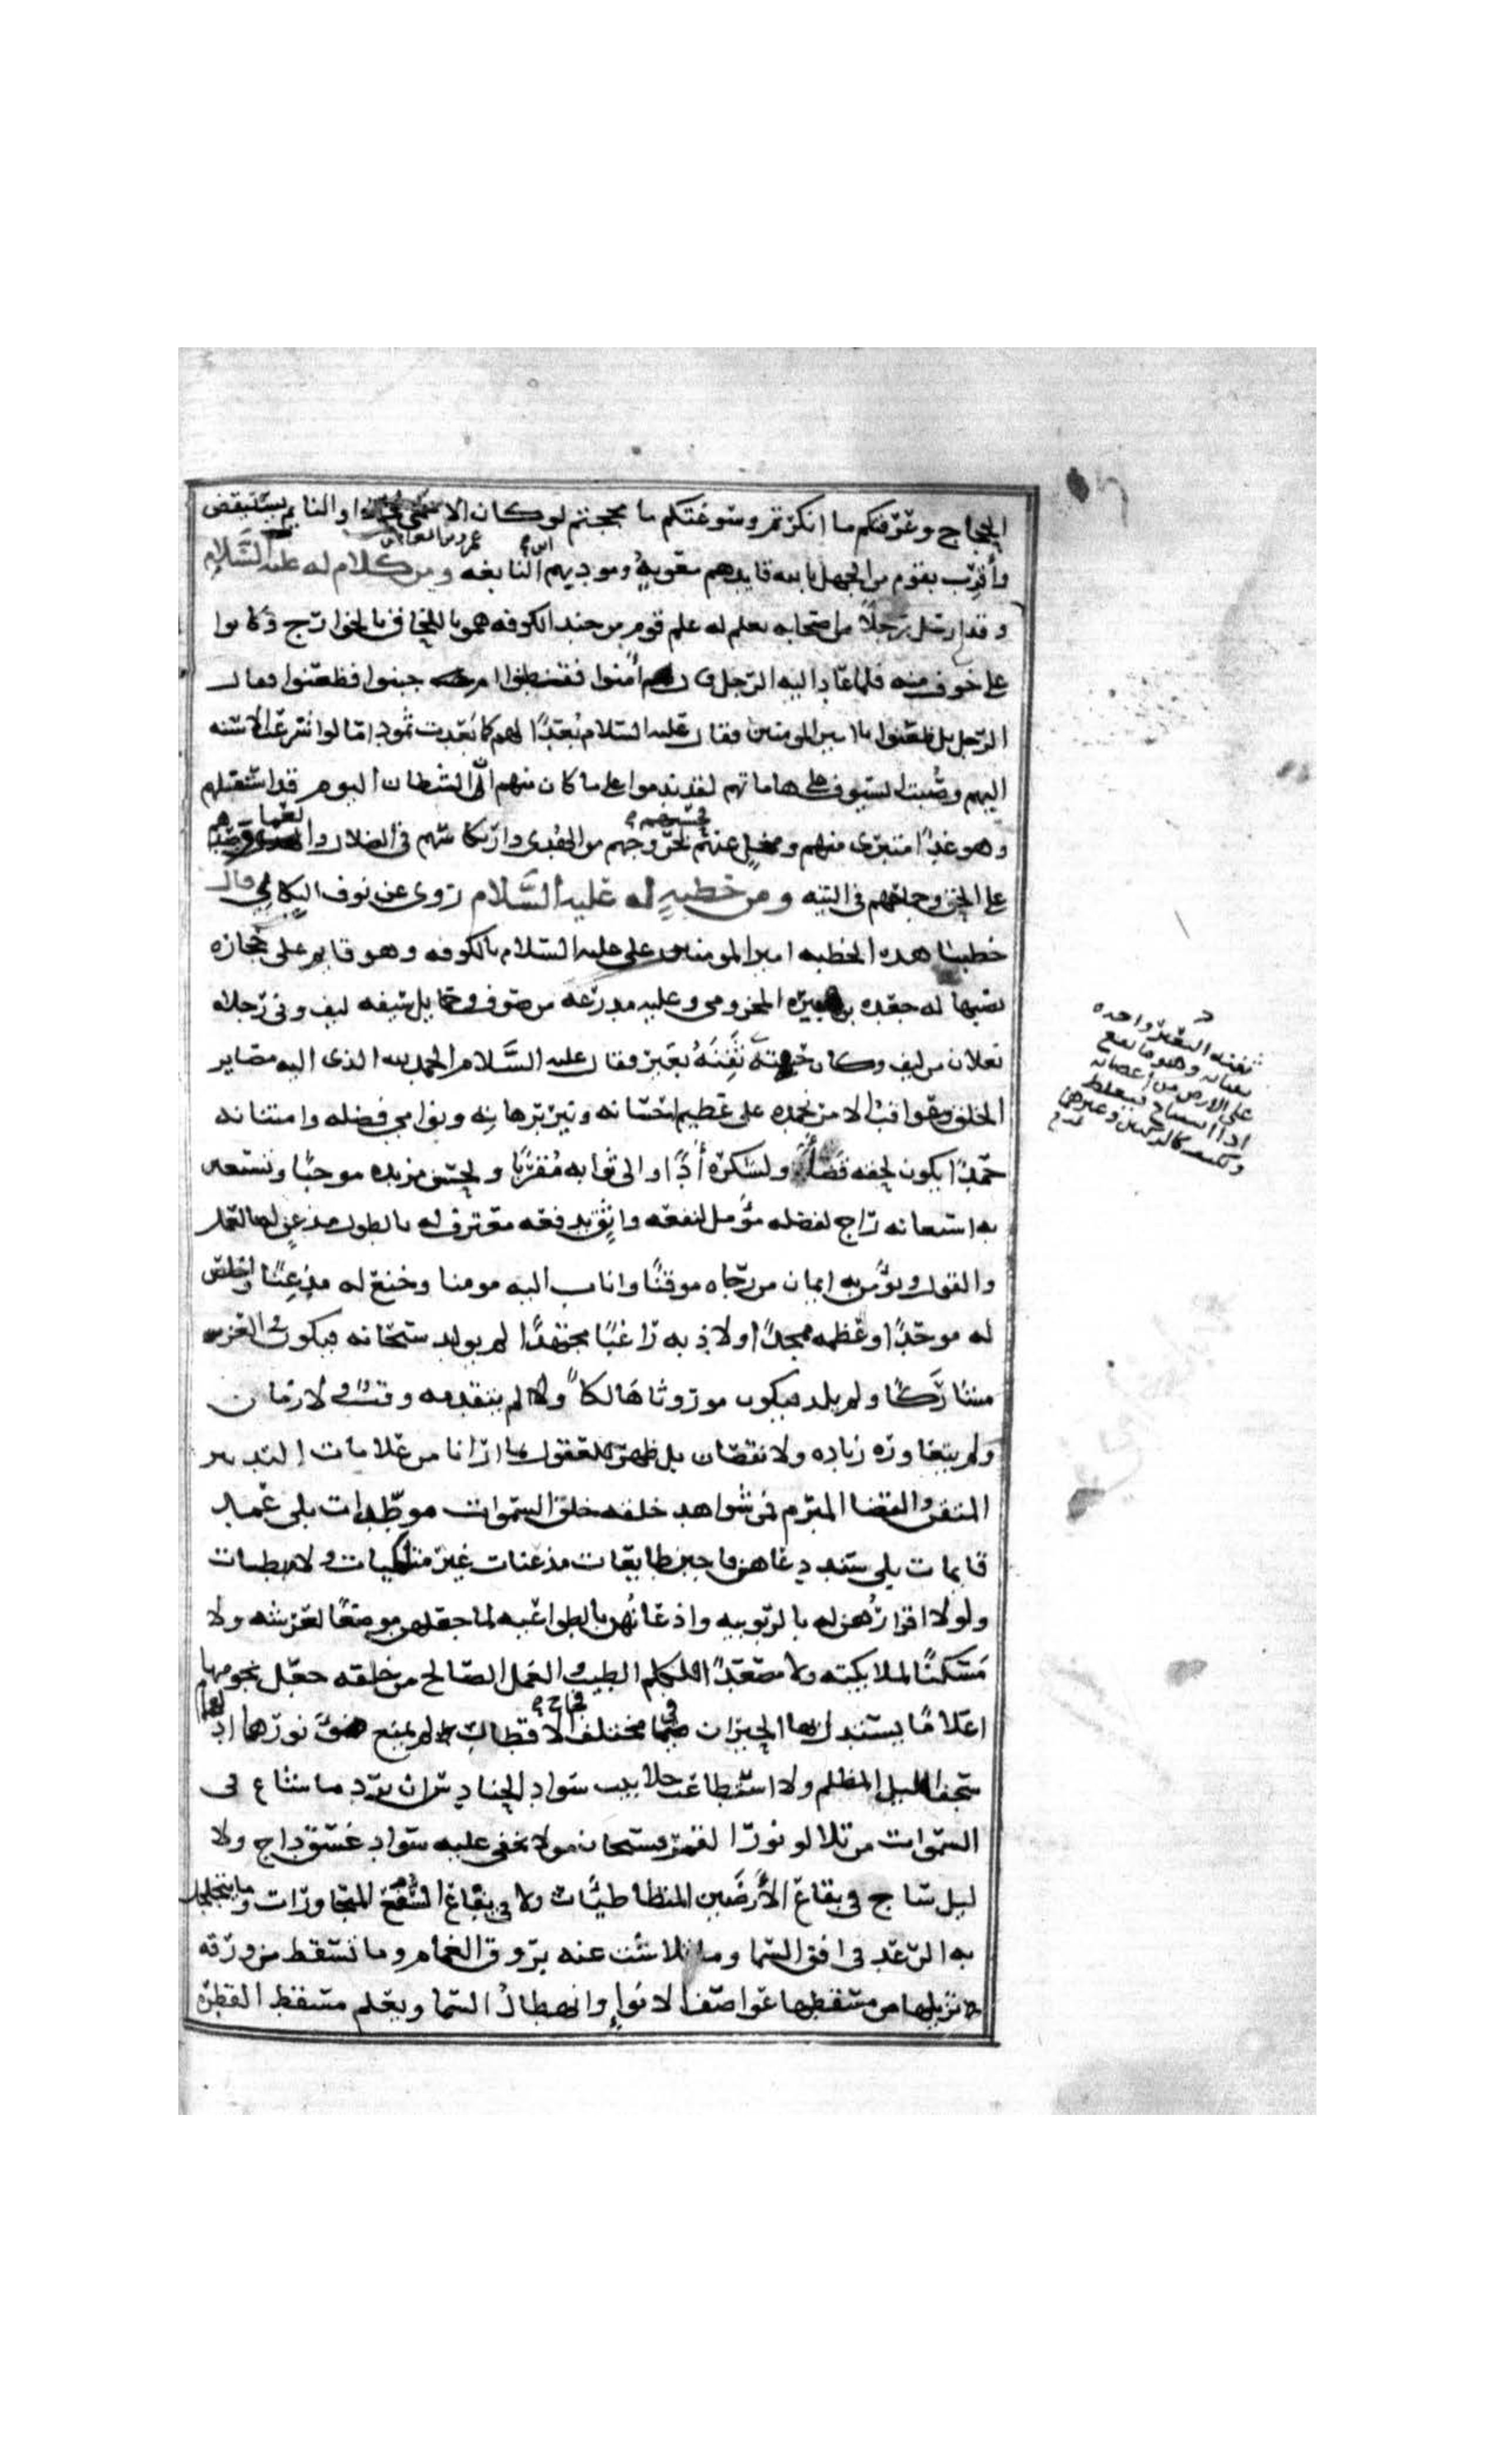 الحجاج وعرفتكم ما انكرتم وسوغتكم ما مججتم لو كان الاعمى يلحظ او النايم يستيقض
عمرو بن العاص
وأقرِب بقوم من الجهل بالله قايدهم معويه ومودبهم ابن النابغه ومن كلام له عليه السَّلام
وقد ارسل رجلاً من اصحابه يعلم له علم قوم من جند الكوفه هموا باللحاق بالخوارج وكانوا
على خوف منه فلما عاد اليه الرجل قال أمنوا فقطنوا ام جبنوا فظعنوا فقال
الرجل بل ظعنوا يا امير المومنين فقال عليه السلام بُعدًا لهم كما بَعِدت ثمود اما لو اشرعت الاسنه
اليهم وصُبت السيوف على هاماتهم لقد ندموا على ما كان منهم انّ الشيطان اليوم قد استفلهم
وهو غدًا متبرى منهم ومخلٍ عنهم فحسبهم بخروجهم من الهُدى وارتكاسهم في الضلال والعما وصدهم
عن الحق وجماحهم في التيه ومن خطبهٍ له عليه السَّلام روى عن نوف البِكالي قال
خطبنا هذه الخطبه امير المومنين على عليه السلام بالكوفه وهو قايم على حجاره
نصبها له جعده بن هبيره المخزومى وعليه مدرعه من صوف وحمايل سيفه ليف وفى رجليه
نعلان من ليف وكان جبهته ثَفِنَهُ بعير فقال عليه السَّلام الحمد لله الذى اليه مصاير
الخلق وعواقب الامر نحمده على عظيم احسانه ونير برهانِه ونوامي فضله وامتنانه
حمدًا يكون لحقه قضاءً ولشكره أدًا والى ثوابه مُقرِّبًا ولحسن مزيده موجبًا ونستعين
به استعانه راج لفضله مؤمل لنفعه واثق بدفعه معترف له بالطول مذعن له بالعمل
والقول ونؤمن به ايمان من رجاه موقنًا واناب اليه مومنا وخنع له مذعِنًا واخلص
له موحدًا وعظمه ممجدًا ولاذ به راغبًا مجتهدًا لم يولد سبحانه فيكون في العز
مشارَكًا ولم يلد فيكون موروثا هَالكاً ولم يتقدمه وقت ولا زمان
ولم يتعاوره زياده ولا نقصان بل ظهر للعقول بما ارانا من علامات التدبير
المتقن والقضا المبرم فمن شواهد خلقه خلق السموات موطّدات بلى عمد
قايمات بلى سند دعاهن فاجبن طايعات مذعنات غير متلكيات ولا مبطيات
ولولا اقرارُهن له بالربوبيه واذعانُهن بالطواعيه لما جعلهن موضعًا لعرشه ولا
مَسكنًا لملايكته ولا مصعدًا للكلم الطيب والعمل الصالح من خلقه جعل نجومها
اعلامًا يستدل بها الحيران في مختلف فجاج الاقطار لم يمنع ضوَّ نورها ادلهمام
سجف الليل المظلم ولا استطاعت جلابيب سواد الحنادس ان ترد ما شاع في
السموات من تلالو نور القمر فسبحان من لا يخفى عليه سواد غسق داج ولا
ليل ساج في بقاع الأرَضين المتطاطيات ولا في يفاع السُّفع المتجاورات وما يتجلجل
به الرعد في افق السما وما تلاشت عنه بروق الغمام وما تسقط من ورقه
تزيلها من مسقطها عواصف الانوا وانهطال السما ويعلم مسقط القطره
ثفنه البعير واحده
ثفناته وهو ما يقع
على الارض من اعضائه
اذا استناخ فيغلظ
كالركبتين وغيرهما